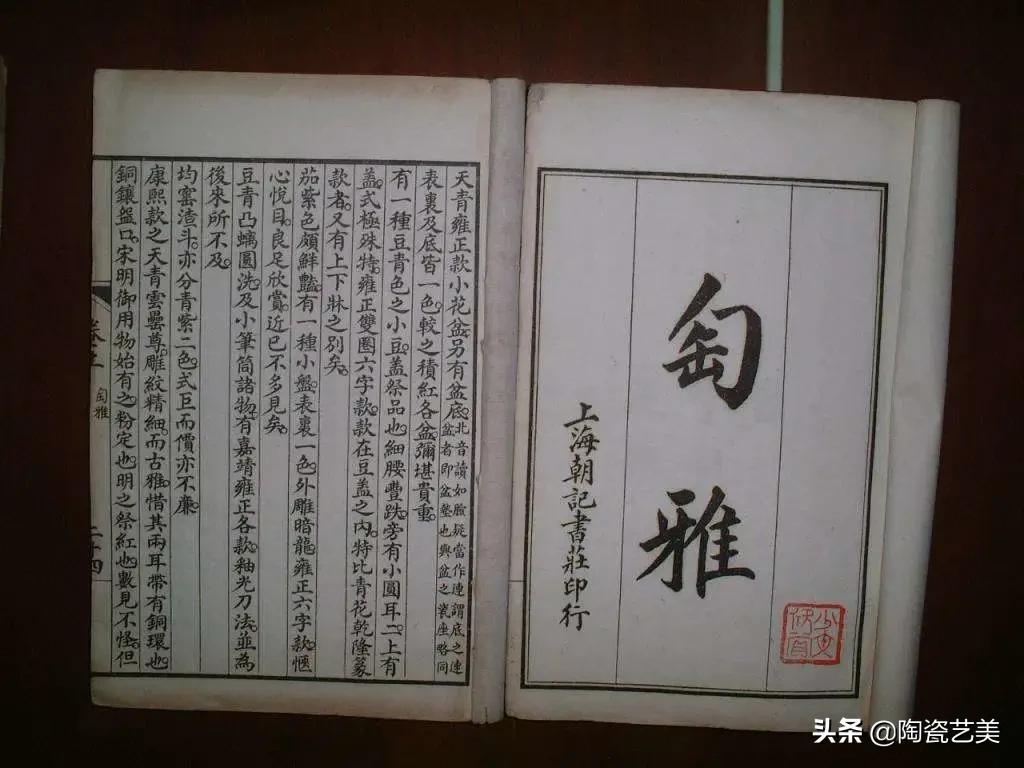 匋雅
上海朝記書莊印行
天青雍正款小花盆另有盆底。北音讀如臉疑當作連謂底之連
盆者即盆墊也與盆之裳座略同
表裏及底皆一色。較之積紅各盆。彌堪貴重。
有一種豆青色之小豆。蓋祭品也。細腰豐趺。旁有小圓耳二。上有
蓋。式極殊特。雍正雙圈六字款。款在豆蓋之內。特比青花乾隆篆
款者。又有上下牀之別矣。
茄紫色頗鮮豔。有一種小盤。表裏一色。外雕暗龍。雍正六字款。愜
心悅目。良足欣賞。近已不多見矣。
豆青凸螭圓洗。及小筆筒諸物。有嘉靖雍正各款。釉光刀法。並為
後來所不及。
均窰渣斗。亦分青紫二色。式巨而價亦不廉
康熙款之天青雲罍尊。雕紋精細而古雅。惜其兩耳帶有銅環也。
銅鑲盤口。宋明御用物始有之。粉定也。明之祭紅也。數見不怪。但
匋雅
二十四
头条 @陶瓷艺美